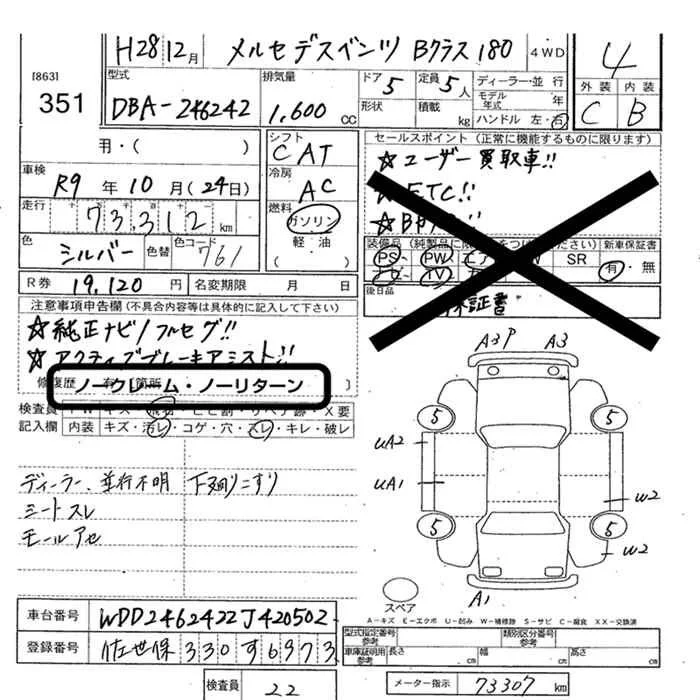 H28 12月 メルセデスベンツ Bクラス 180 4WD
[863]
351
型式 DBA-246242
排気量 1,600 CC
ドア 5
定員 5人
形状
積載 kg
ディーラー・並 行
モデル年式 年
ハンドル 左・右
4
外装 内装
C B
用・( )
シフト CAT
車検
R9年10月(24日)
冷房 AC
走行 73,312 km
燃料
ガソリン
軽・油
色 シルバー 色替 色コード 761
R券 19,120円 名変期限 月 日
セールスポイント(正常に機能するものに限ります)
☆ユーザー買取車!!
☆ETC!!
装備品
PS PW SR
TV
新車保証書
有・無
後日品
保証書
注意事項申告欄(不具合内容等は具体的に記入して下さい)
☆純正ナビ/フルセグ!!
☆アクティブブレーキアシスト!!
修復歴
ノークレーム・ノーリターン
検査員
記入欄 内装 キズ・汚レ・コゲ・穴・スレ・キレ・破レ
X要
ディーラー、並行不明 下廻りこすり
シートスレ
モールアセ
A3 P A3
5 5
UA2
UA1
W2
5 5
W2
A1
スペア
A-キズ E-エクボ U-凹み W-補修跡 S-サビ C-腐食 XX-交換済
車台番号 WDD2462422J420502
登録番号 佐世保 330 す 6973
型式指定番号 参考
類別区分番号 参考
車庫証明用 参考 長さ cm 幅 cm 高さ cm
検査員 22
メーター指示 73307 km